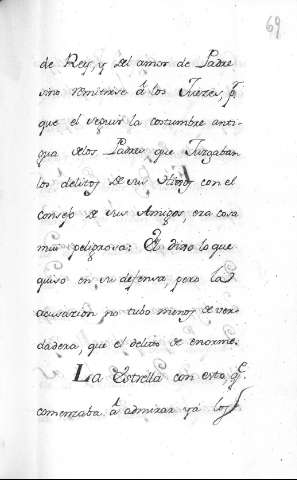 69
de Rey, y del amor de Padre
sino remitirse â los Juezes, p.
que el seguir la costumbre anti-
gua delos Padres, que Juzgaban
los delitos de sus Hijos con el
Consejo de sus Amigos, era cosa
mui peligrosa: El dixo lo que
quiso en su defensa, pero la
acusazion no tubo menos de ver-
dadera, que el delito de enorme.
La Estrella con esto, q.e
comenzaba â admirar yà los